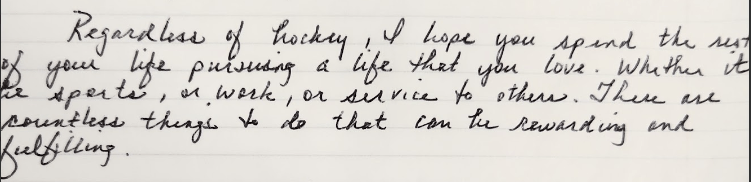 Regardless of hockey, I hope you spend the rest
of your life pursuing a life that you love. Whether it
be sports, or work, or service to others. There are
countless things to do that can be rewarding and
fulfilling.